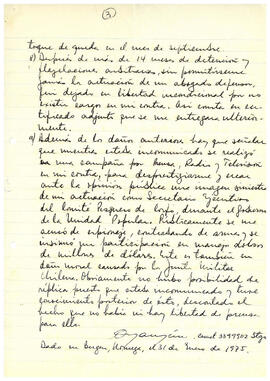 3
toque de queda en el mes de septiembre.
8) Después de más de 14 meses de detención y
flagelaciones arbitrarias, sin permitírseme
jamás la actuación de un abogado defensor,
fui dejado en libertad incondicional por no
existir cargos en mi contra. Así consta en cer-
tificado adjunto que se me entregara ulterior-
mente.
9) Además de los daños anteriores hay que señalar
que mientras estaba incomunicado se realizó
una campaña por Prensa, Radio y Televisión
en mi contra, para desprestigiarme y crear
ante la opinión pública una imagen siniestra
de mi actuación como Secretario Ejecutivo
del Comité Asesor de, durante el gobierno
de la Unidad Popular. Públicamente se me
acusó de espionaje, contrabando de armas y se
insinuó mi participación en manejo doloso
de millones de dólares. Este es también un
daño moral causado por la Junta Militar
Chilena. Obviamente no hubo posibilidad de
réplica puesto que estaba incomunicado y tuve
conocimiento posterior de ésto, descontado el
hecho que no había ni hay libertad de prensa
para ello.
carnet 3399902 Stgo
Dado en Bergen, Noruega, el 31 de Enero de 1975.